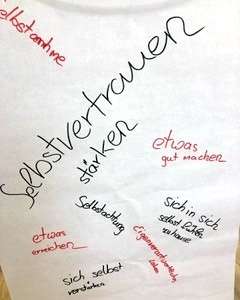 Selbstannahme
Selbstvertrauen
stärken
etwas
gut machen
Selbstachtung
sich in sich
selbst
zuhause
etwas
erreichen
sich selbst
verstehen